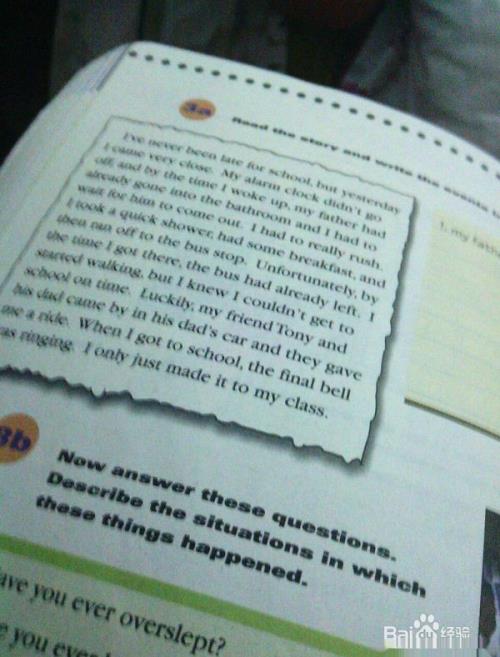 3a
Read the story and write the events
I've never been late for school, but yesterday
I came very close. My alarm clock didn't go
off, and by the time I woke up, my father had
already gone into the bathroom and I had to
wait for him to come out. I had to really rush.
I took a quick shower, had some breakfast, and
then ran off to the bus stop. Unfortunately, by
the time I got there, the bus had already left. I
started walking, but I knew I couldn't get to
school on time. Luckily, my friend Tony and
his dad came by in his dad's car and they gave
me a ride. When I got to school, the final bell
as ringing. I only just made it to my class.
1. my fath
3b
Now answer these questions.
Describe the situations in which
these things happened.
ave you ever overslept?
e you eve
Bai 经验